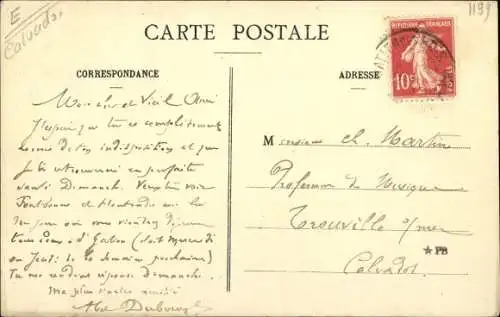 E
Calvados
1199
CARTE POSTALE
CORRESPONDANCE
ADRESSE
REPUBLIQUE FRANÇAISE
10c
POSTES
Mon cher et Vieil Ami
J'espère que tu es complètement
remis de ton indisposition et que
je te retrouverai en parfaite
santé Dimanche. Veux-tu voir
et si
jour où vous viendrez déjeuner
tous deux d'Gaston (soit Mercredi
ou Jeudi de la semaine prochaine)
Tu me rendras réponse dimanche.
Ma plus amitié
Dubourg
M onsieur Ch. Martin
Professeur de Musique
Trouville s/mer
★ PB
Calvados